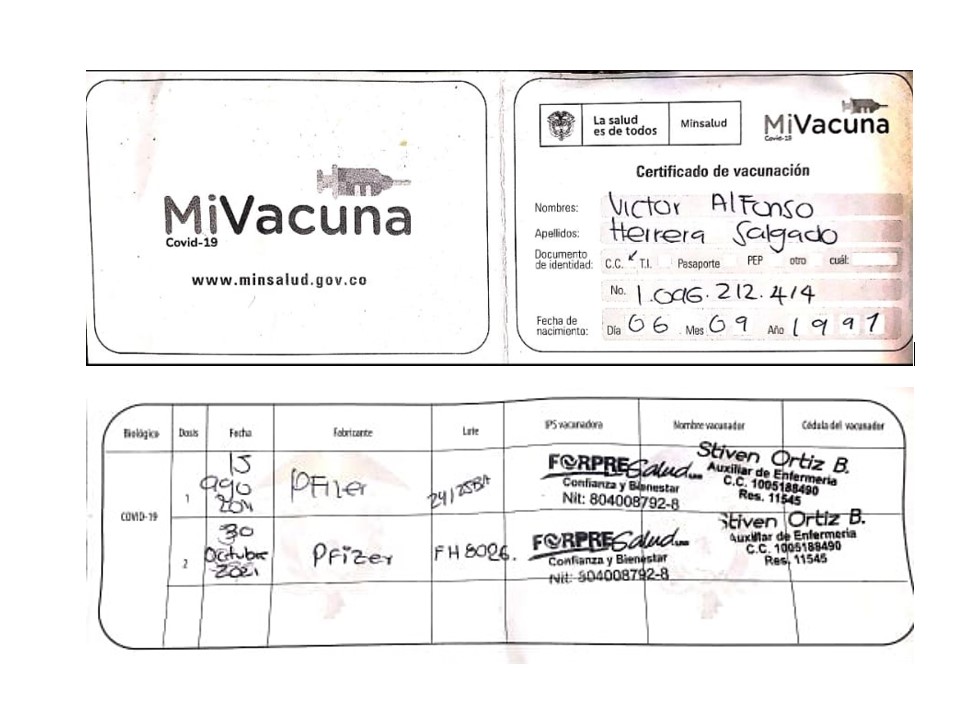 MiVacuna
Covid-19
www.minsalud.gov.co
La salud
es de todos
Minsalud
MiVacuna
Covid-19
Certificado de vacunación
Nombres: Victor Alfonso
Apellidos: Herrera Salgado
Documento
de identidad: C.C. T.I. Pasaporte PEP otro cuál:
No. 1.096.212.414
Fecha de
nacimiento: Día 06 Mes 09 Año 1991
Biológico Dosis Fecha Fabricante Lote IPS vacunadora Nombre vacunador Cédula del vacunador
COVID-19
1
15
ago
Pfizer
FORPRESalud
Confianza y Bienestar
Nit: 804008792-8
Stiven Ortiz B.
Auxiliar de Enfermeria
C.C. 1005188490
Res. 11545
2
30
Octubre
2021
Pfizer
FH8026.
FORPRESalud
Confianza y Bienestar
Nit: 804008792-8
Stiven Ortiz B.
Auxiliar de Enfermeria
C.C. 1005188490
Res. 11545